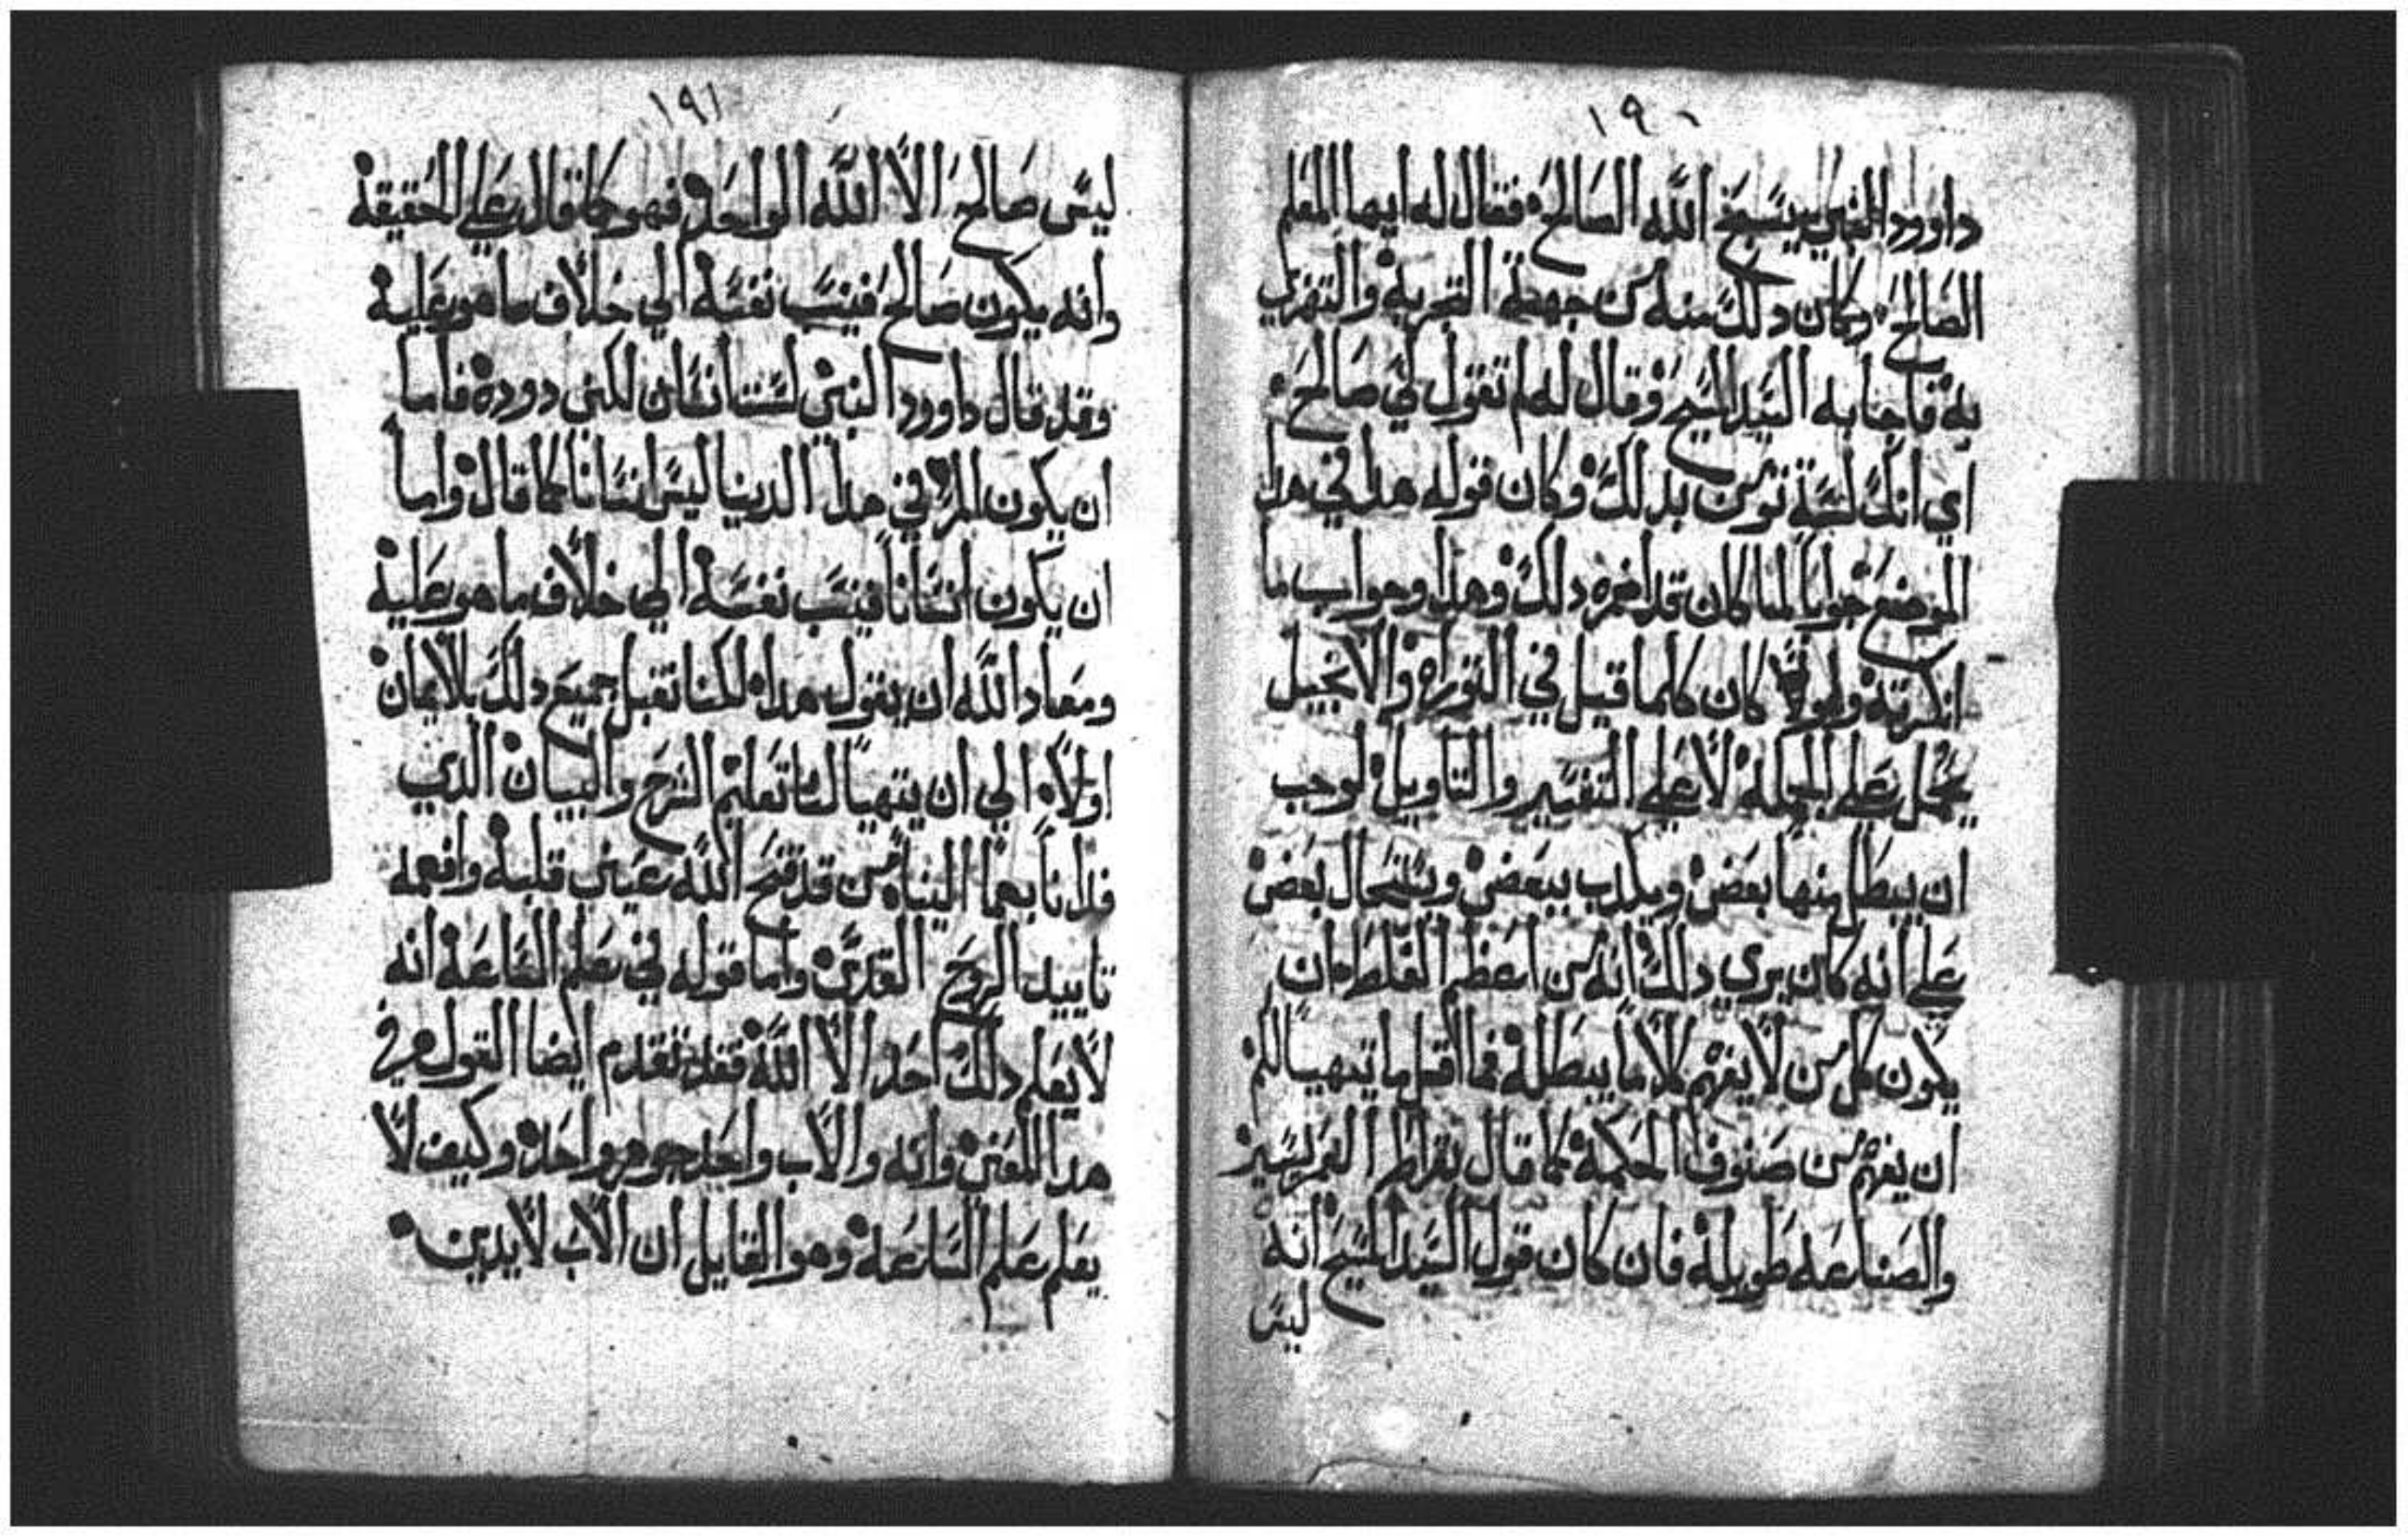 ١٩٠
داوود النبي يسبح الله الصالح فقال له ايها المعلم
الصالح وكان دلك منه من جهة التجربة والتهزي
به فاجابه السيد المسيح وقال له لم تقول لي صالح
اي انك لسة تومن بدلك وكان قوله هدا في هدا
الموضع جوابا لما كان قد اضمره دلك وهدا وجواب ما
انكرته ولو كان كلما قيل في التوراه والانجيل
يحمل علي الجمله لا علي التفسير والتاويل لوجب
ان يبطل منها بعض ويكدب ببعض ويستحال بعض
علي انه كان يري دلك انه من اعظم الغلط ان
يكون كل من لا يفهم كلاما يبطله فما اقل ما تهيا للمر
ان يفهم من صنوف الحكمة كما قال بقراط العمر يسير
والصناعه طويله فان كان قول السيد المسيح انه
ليس
١٩١
ليس صالح الا الله الواحد فهو كما قال علي الحقيقة
وانه يكون صالح فينسب نفسه الي خلاف ما هو عليه
وقد قال داوود النبي لست انسان لكني دوده فاما
ان يكون المر في هدا الدنيا ليس انسانا كما قال واما
ان يكون انسانا فينسب نفسه الي خلاف ما هو عليه
ومعاد الله ان يقول هدا لكنا نقبل جميع دلك بالايمان
اولا الي ان يتهيا لنا تعليم الشرح والبيان الدي
فلدنا بهما الينا من قد فتح الله عيني قلبه وافهمه
تاييد الروح القدس واما قوله في علم الساعه انه
لا يعلم دلك احد الا الله فقد تقدم ايضا القول في
هدا المعني وانه والاب واحد جوهر واحد وكيف لا
يعلم علم الساعه وهو القايل ان الاب لا يدين